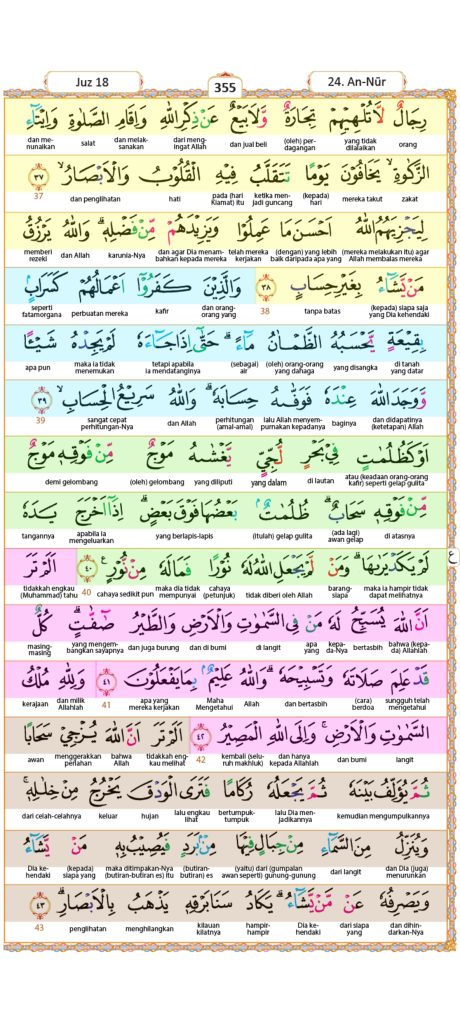 Juz 18
355
24. An-Nūr
رِجَالٌ لَّا تُلْهِيْهِمْ تِجَارَةٌ وَّلَا بَيْعٌ عَنْ ذِكْرِ اللّٰهِ وَاِقَامِ الصَّلٰوةِ وَاِيْتَاۤءِ
orang yang tidak dilalaikan (oleh) perdagangan dan jual beli dari mengingat Allah dan melaksanakan salat dan menunaikan
الزَّكٰوةِ ۙ يَخَافُوْنَ يَوْمًا تَتَقَلَّبُ فِيْهِ الْقُلُوْبُ وَالْاَبْصَارُ ۙ ٣٧
zakat mereka takut (kepada) hari ketika menjadi guncang pada (hari Kiamat) itu hati dan penglihatan 37
لِيَجْزِيَهُمُ اللّٰهُ اَحْسَنَ مَا عَمِلُوْا وَيَزِيْدَهُمْ مِّنْ فَضْلِهٖ ۗ وَاللّٰهُ يَرْزُقُ
(mereka melakukan itu) agar Allah membalas mereka (dengan) yang lebih baik daripada apa yang telah mereka kerjakan dan agar Dia menambahkan kepada mereka karunia-Nya dan Allah memberi rezeki
مَنْ يَّشَاۤءُ بِغَيْرِ حِسَابٍ ٣٨ وَالَّذِيْنَ كَفَرُوْٓا اَعْمَالُهُمْ كَسَرَابٍۢ
(kepada) siapa saja yang Dia kehendaki tanpa batas 38 dan orang-orang yang kafir perbuatan mereka seperti fatamorgana
بِقِيْعَةٍ يَّحْسَبُهُ الظَّمْاٰنُ مَاۤءً ۗ حَتّٰىٓ اِذَا جَاۤءَهٗ لَمْ يَجِدْهُ شَيْـًٔا
di tanah yang datar yang disangka (oleh) orang-orang yang dahaga (sebagai) air tetapi apabila ia mendatanginya maka ia tidak menemukan apa pun
وَّوَجَدَ اللّٰهَ عِنْدَهٗ فَوَفّٰىهُ حِسَابَهٗ ۗ وَاللّٰهُ سَرِيْعُ الْحِسَابِ ۙ ٣٩
dan didapatinya (ketetapan) Allah baginya lalu Allah menyempurnakan kepadanya perhitungan (amal-amal) dan Allah sangat cepat perhitungan-Nya 39
اَوْ كَظُلُمٰتٍ فِيْ بَحْرٍ لُّجِّيٍّ يَّغْشٰىهُ مَوْجٌ مِّنْ فَوْقِهٖ مَوْجٌ
atau (keadaan orang-orang kafir) seperti gelap gulita di lautan yang dalam yang diliputi (oleh) gelombang demi gelombang
مِّنْ فَوْقِهٖ سَحَابٌ ۗ ظُلُمٰتٌۢ بَعْضُهَا فَوْقَ بَعْضٍ ۗ اِذَآ اَخْرَجَ يَدَهٗ
di atasnya (ada lagi) awan gelap (itulah) gelap gulita yang berlapis-lapis apabila ia mengeluarkan tangannya
لَمْ يَكَدْ يَرٰىهَا ۗ وَمَنْ لَّمْ يَجْعَلِ اللّٰهُ لَهٗ نُوْرًا فَمَا لَهٗ مِنْ نُّوْرٍ ࣖ ٤٠ اَلَمْ تَرَ
maka ia hampir tidak dapat melihatnya barangsiapa tidak diberi oleh Allah cahaya (petunjuk) maka dia tidak mempunyai cahaya sedikit pun 40 tidakkah engkau (Muhammad) tahu
ع
اَنَّ اللّٰهَ يُسَبِّحُ لَهٗ مَنْ فِى السَّمٰوٰتِ وَالْاَرْضِ وَالطَّيْرُ صٰۤفّٰتٍ ۗ كُلٌّ
bahwa (kepada) Allahlah bertasbih kepada-Nya apa yang di langit dan di bumi dan juga burung yang mengembangkan sayapnya masing-masing
قَدْ عَلِمَ صَلَاتَهٗ وَتَسْبِيْحَهٗ ۗ وَاللّٰهُ عَلِيْمٌۢ بِمَا يَفْعَلُوْنَ ٤١ وَلِلّٰهِ مُلْكُ
sungguh telah mengetahui (cara) berdoa dan bertasbih dan Allah Maha Mengetahui apa yang mereka kerjakan 41 dan milik Allahlah kerajaan
السَّمٰوٰتِ وَالْاَرْضِ ۚ وَاِلَى اللّٰهِ الْمَصِيْرُ ٤٢ اَلَمْ تَرَ اَنَّ اللّٰهَ يُزْجِيْ سَحَابًا
langit dan bumi dan hanya kepada Allahlah kembali (seluruh makhluk) 42 tidakkah engkau melihat bahwa Allah menggerakkan perlahan awan
ثُمَّ يُؤَلِّفُ بَيْنَهٗ ثُمَّ يَجْعَلُهٗ رُكَامًا فَتَرَى الْوَدْقَ يَخْرُجُ مِنْ خِلٰلِهٖ ۚ
kemudian mengumpulkannya lalu Dia menjadikannya bertumpuk-tumpuk lalu engkau lihat hujan keluar dari celah-celahnya
وَيُنَزِّلُ مِنَ السَّمَاۤءِ مِنْ جِبَالٍ فِيْهَا مِنْۢ بَرَدٍ فَيُصِيْبُ بِهٖ مَنْ يَّشَاۤءُ
dan Dia (juga) menurunkan dari langit (yaitu) dari (gumpalan awan seperti) gunung-gunung (butiran-butiran) es maka ditimpakan-Nya (butiran-butiran es) itu (kepada) siapa yang Dia kehendaki
وَيَصْرِفُهٗ عَنْ مَّنْ يَّشَاۤءُ ۗ يَكَادُ سَنَا بَرْقِهٖ يَذْهَبُ بِالْاَبْصَارِ ۗ ٤٣
dan dihindarkan-Nya dari siapa yang Dia kehendaki hampir-hampir kilauan kilatnya menghilangkan penglihatan 43